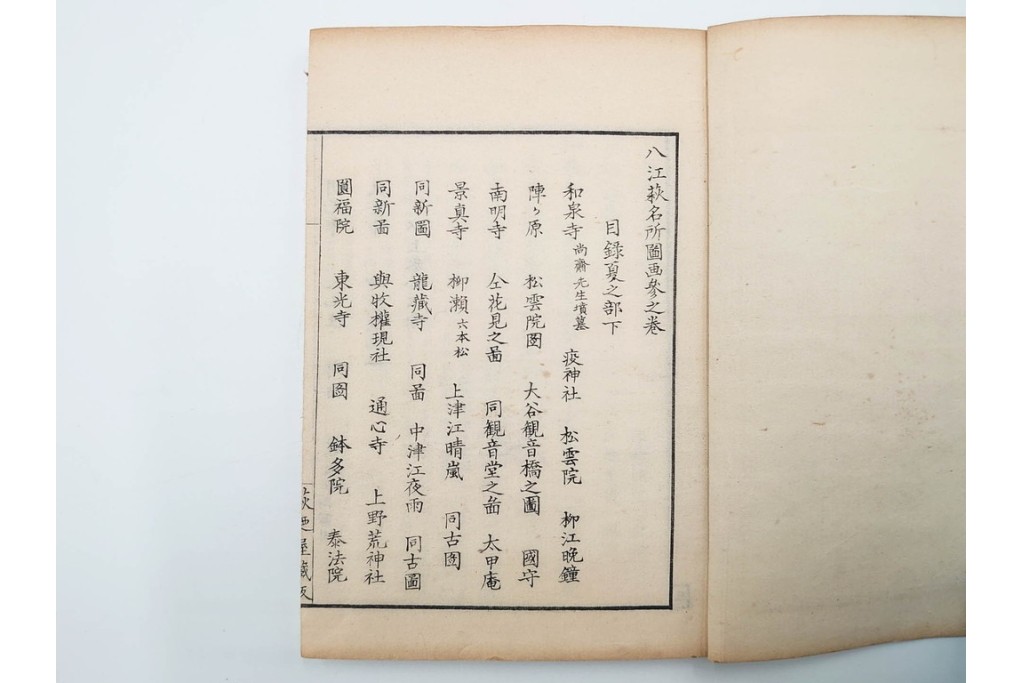 八江萩名所圖画參之巻
目錄夏之部下
和泉寺 尚齋先生墳墓 疫神社 松雲院 柳江晩鐘
陣ヶ原 松雲院图 大谷観音橋之圖 國守
南明寺 仝花見之啚 同観音堂之啚 太甲庵
景真寺 柳瀬 六本松 上津江晴嵐 同古图
同新圖 龍蔵寺 同啚 中津江夜雨 同古圖
同新啚 與牧權現社 通心寺 上野荒神社
圓福院 東光寺 同图 鉢多院 泰法院
屋蔵